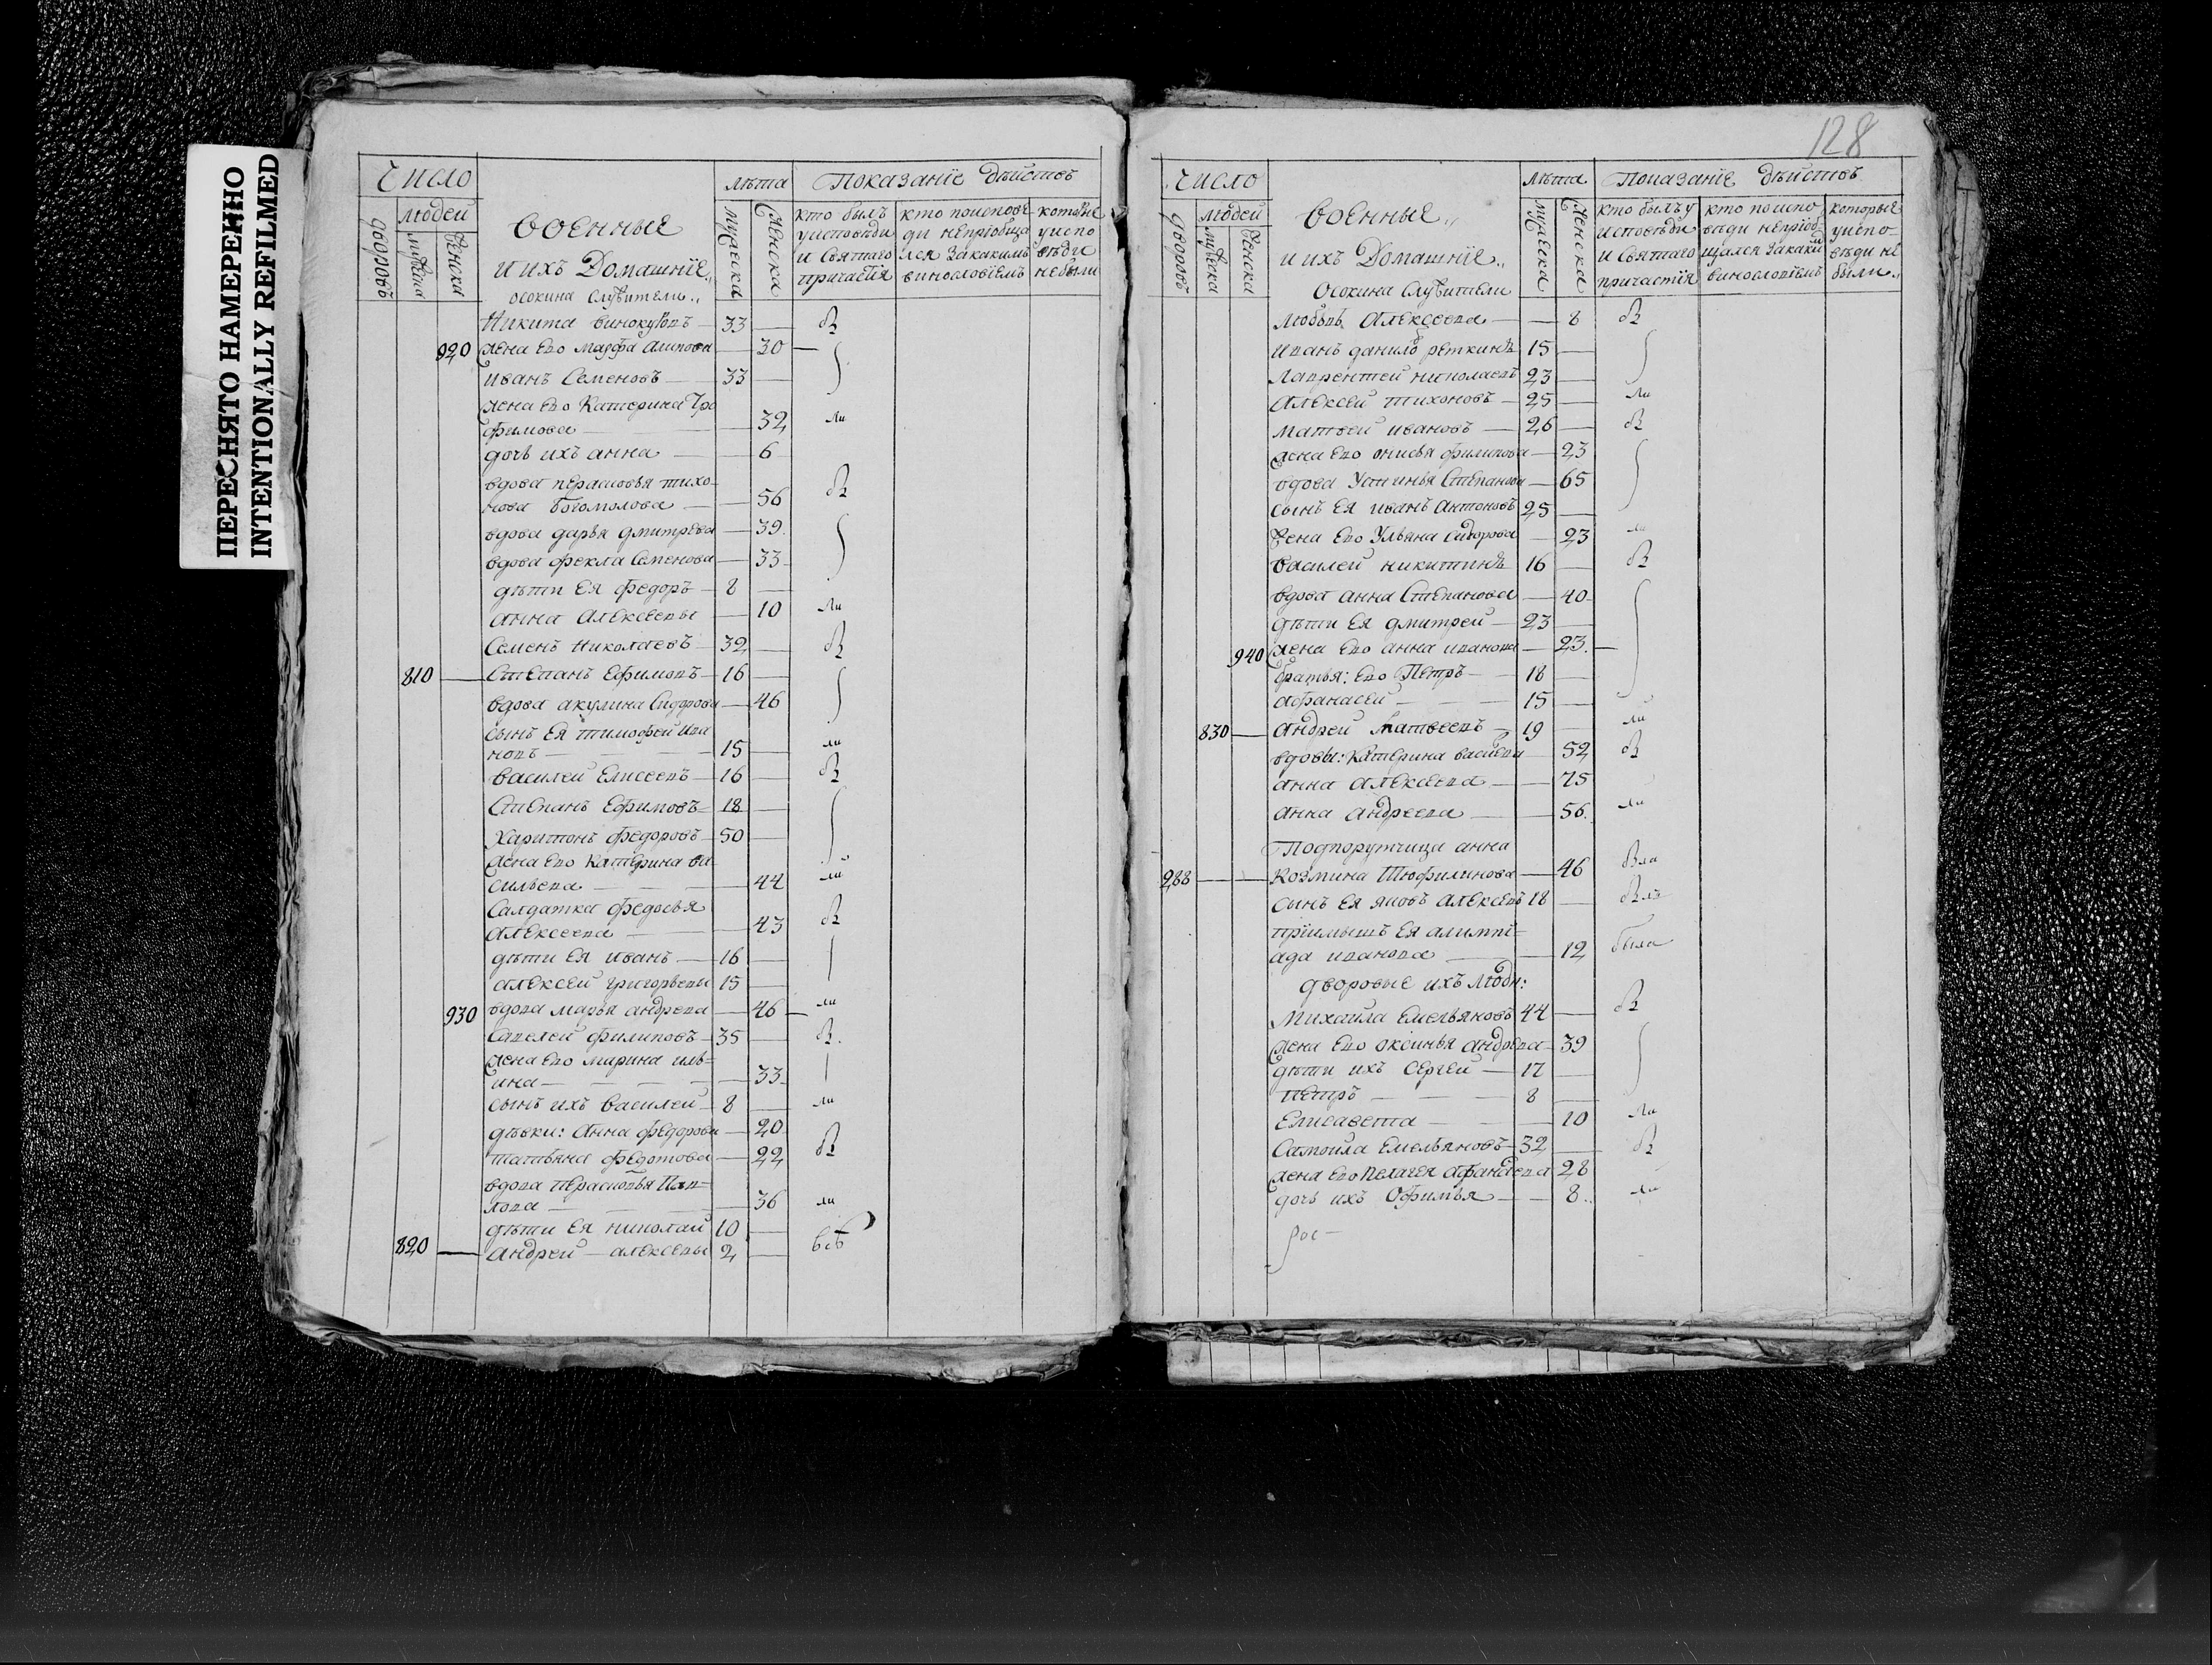 ПЕРЕСНЯТО НАМЕРЕННО
INTENTIONALLY REFILMED
Число
лѣта
Показанїе дѣйствъ
людей
дворовъ
мужеска
женска
военные
и ихъ Домашнїе
осокина служители
мужеска
женска
кто былъ
у исповѣди
и святаго
причастїя
кто по исповѣ
ди не прїобща
лся за какимъ
винословїемъ
которые
у испо
вѣди
не были
Никита винокуровъ 33
920 жена Его марфа 30
иванъ Семеновъ 33
жена Его Катерина Тро
фимова 32 ли
дочь ихъ анна 6
вдова парасковья тихо
нова Богомолова 56
вдова дарья дмитрева 39
вдова фекла Семенова 33
дѣти Ея федоръ 8
анна Алексеевы 10 ли
Семенъ Николаевъ 32
810 Степанъ Ефимовъ 16
вдова акулина Сидорова 46
сынъ Ея тимофей ива
новъ 15 ли
василей Елисеевъ 16
Степанъ Ефимовъ 18
Харитонъ федоровъ 50
жена Его Катерина ва
сильева 44 ли
Салдатка федосья
Алексеева 43
дѣти Ея иванъ 16
алексей григорьевы 15
930 вдова марья андрева 46 ли
Савелей филиповъ 35
жена Его марина иль
ина 33
сынъ ихъ василей 8 ли
дѣвки: Анна федорова 20
татьяна федотова 22
вдова парасковья Пав
лова 36 ли
дѣти Ея николай 10
820 андрей алексевы 2
128
Число
лѣта
Показанїе дѣйствъ
людей
дворовъ
мужеска
женска
военные
и ихъ Домашнїе
Осокина Служители
мужеска
женска
кто былъ у
исповѣди
и святаго
причастїя
кто по испо
вѣди не прїоб
щался за каким
винословїемъ
которые
у испо
вѣди не
были
любовь Алексеева 8
иванъ данило реткинъ 15
Лаврентей николаевъ 23
Алексей тихоновъ 25 ли
матвей ивановъ 26
жена Его онисья филипова 23
вдова Устинья Степанова 65
сынъ Ея иванъ Антоновъ 25
жена Его Ульяна Сидорова 23 ли
василей никитинъ 16
вдова анна Степанова 40
дѣти Ея дмитрей 23
940 жена Его анна иванова 23
братья: Его Петръ 18
афанасей 15
830 андрей матвеевъ 19 ли
вдовы: Катерина васильева 52
анна алексеева 75
анна андреева 56 ли
Подпорутчица анна
288 Козмина Тюфилинова 46
сынъ Ея яковъ алексеевъ 18
прїимышъ Ея алимпї
ада иванова 12 была
дворовые ихъ люди:
михайла Емельяновъ 44
жена Его оксинья андрева 39
дѣти ихъ Сергей 17
петръ 8
Елисавета 10 ли
Самойла Емельяновъ 32
жена Его пелагея афанасева 28
дочь ихъ Офимья 8 ли